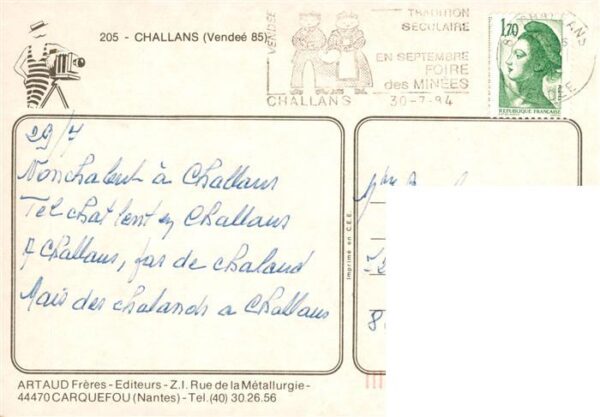 205 - CHALLANS (Vendeé 85)
VENDEE
TRADITION
SECULAIRE
EN SEPTEMBRE
FOIRE
des MINÉES
CHALLANS
30-7-84
1,70
REPUBLIQUE FRANÇAISE
29/7
Nonchalent à Challans
Tel chat lent en Challans
A Challans, pas de chaland
Mais des chalands a Challans
Imprimé en C.E.E.
8
ARTAUD Frères - Editeurs - Z.I. Rue de la Métallurgie -
44470 CARQUEFOU (Nantes) - Tel. (40) 30.26.56